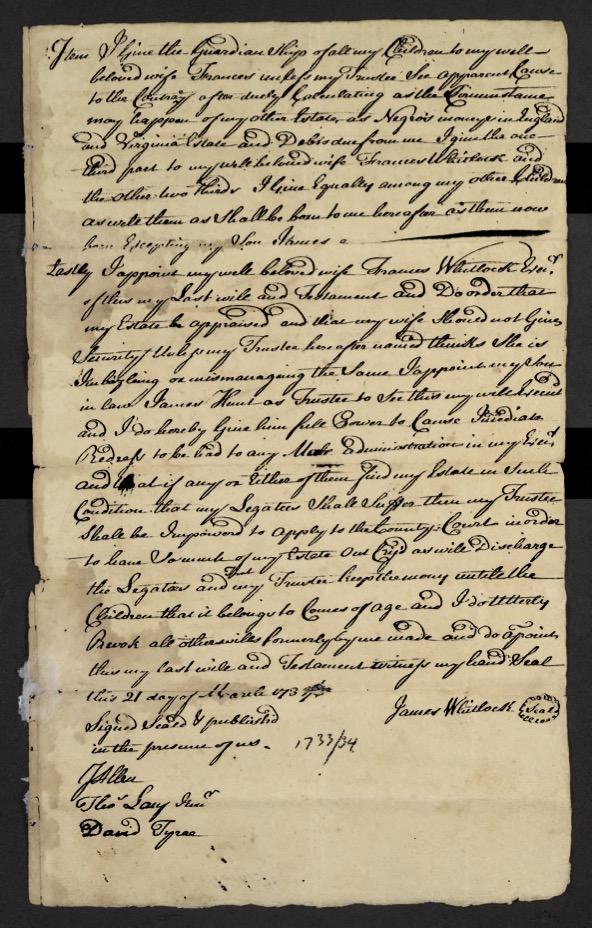 Item I Give the Guardian Ship of all my Children to my well
beloved wife Frances unless my Trustee See apparent Cause
to the Contrary after duely Calculating as the Circumstance
may happen of my other Estate as Negro's money in England
and Virginia Estate and Debts due from me I give the one
third part to my well beloved wife Frances Whitlock and
the other two thirds I Give Equally among my other Children
as well them as Shall be born to me hereafter as them now
born Excepting my Son James
Lastly I appoint my well beloved wife Frances Whitlock Exec.r
of this my Last will and Testament and Do order that
my Estate be appraised and that my wife Should not Give
Security Unless my Trustee hereafter named thinks She is
Imbezling or mismanaging the Same I appoint my Son
in law James Hunt as Trustee to See this my will Execut
and I do hereby Give him full Power to Cause Imediate
Redress to be had to any Male Administration in my Exec.r
and that if any or Either of them find my Estate in Such
Condition that my Legatees Shall Suffer then my Trustee
Shall be Impowerd to apply to the County Court in order
to have So much of my Estate Out Cry'd as will Discharge
the Legatees and that my Trustee keep the money untill the
Children that it belongs to Comes of age and I do Utterly
Revok all others wills formerly by me made and do apoint
this my last will and Testament witness my hand Seal
this 21 day of March 173
James Whitlock Seal
Signed Seald & published
in the presence of us.
1733/34
J Allen
Tho.s Lacy Jun.r
David Tyree